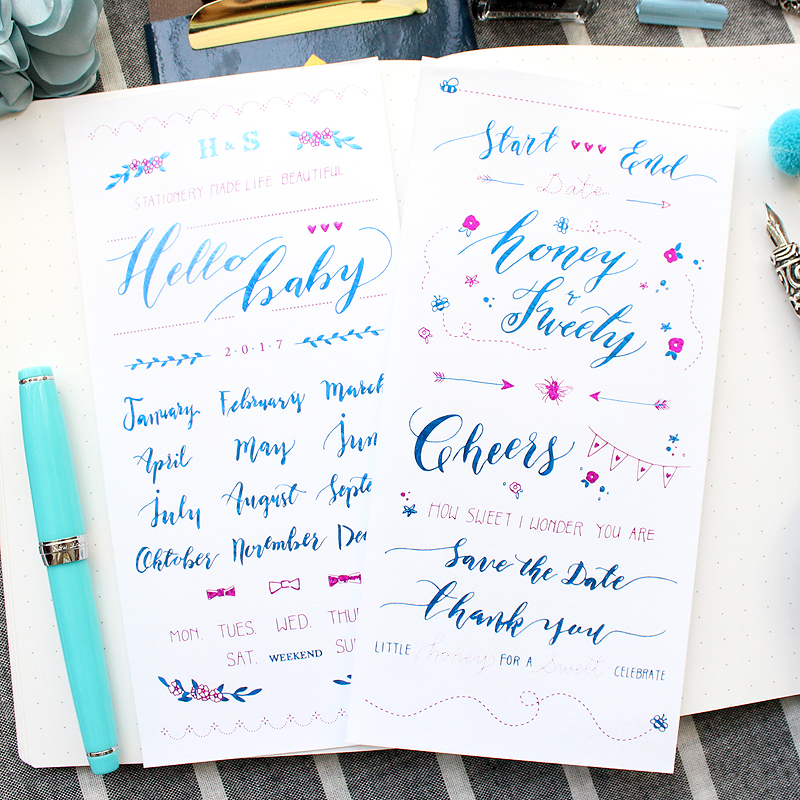 H & S
STATIONERY MADE LIFE BEAUTIFUL
Hello
baby
2·0·1·7
January February March
April May Jun
July August Septe
Oktober November De
MON. TUES. WED. THU
SAT. WEEKEND SU
Start End
Date
honey
&
Sweety
Cheers
HOW SWEET I WONDER YOU ARE
Save the Date
thank you
LITTLE honey FOR A sweet CELEBRATE